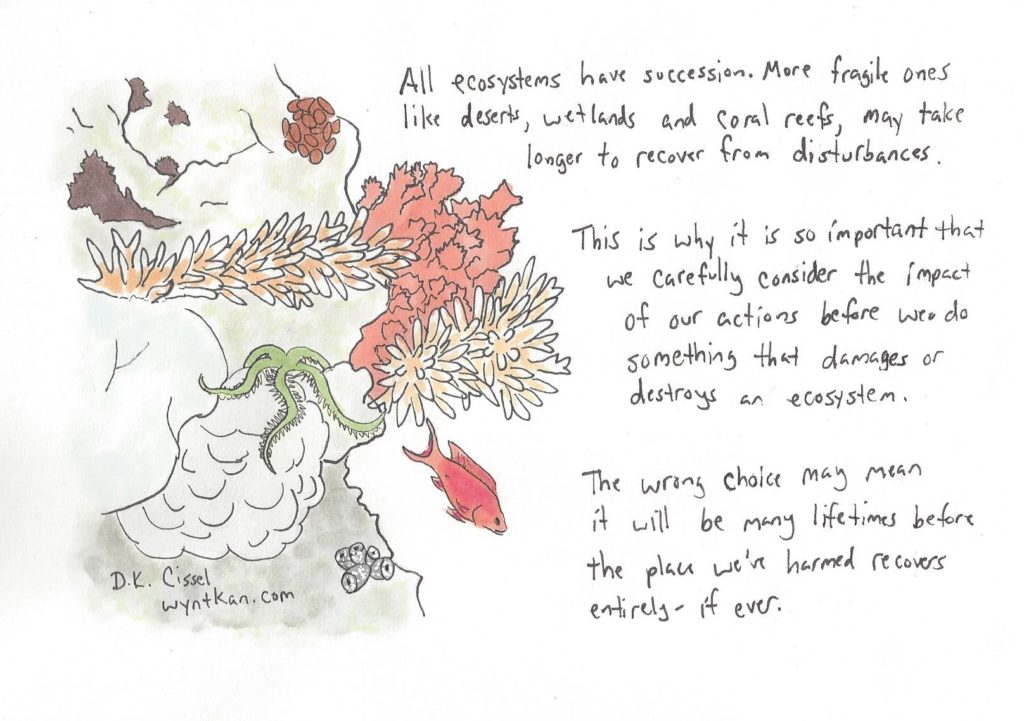 All ecosystems have succession. More fragile ones
like deserts, wetlands and coral reefs, may take
longer to recover from disturbances.
This is why it is so important that
we carefully consider the impact
of our actions before we do
something that damages or
destroys an ecosystem.
The wrong choice may mean
it will be many lifetimes before
the place we've harmed recovers
entirely - if ever.
D.K. Cissel
wyntkan.com